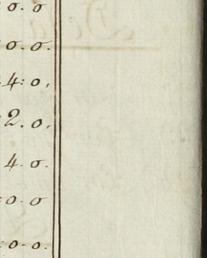 0. 0
0. 0.
4: 0.
2. 0.
4. 0.
: 0. 0
: 0-0.